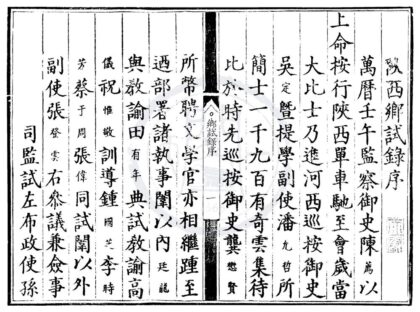 陝西鄉試錄序
萬曆壬午監察御史陳薦以
上命按行陝西單車馳至會歲當
大比士乃進河西巡按御史
吳定暨提學副使潘允哲所
簡士一千九百有奇雲集待
比於時先巡按御史龔懋賢
鄉試錄序
一
所幣聘文學官亦相繼踵至
廼部署諸執事闈以內廷龍
與教諭田有年典試教諭高
儀祝惟敬訓導鍾國芝李時
芳蔡于周張偉同試闈以外
副使張登雲右參議兼僉事
司監試左布政使孫